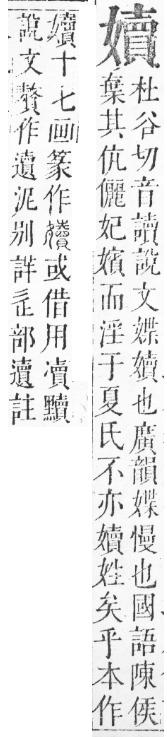 嬻
杜谷切音讀說文媟嬻也廣韻媟慢也國語陳侯
棄其伉儷妃嬪而淫于夏氏不亦嬻姓矣乎本作
嬻十七画篆作嬻或借用凟黷
說文贅作遺泥别詳辵部遺註